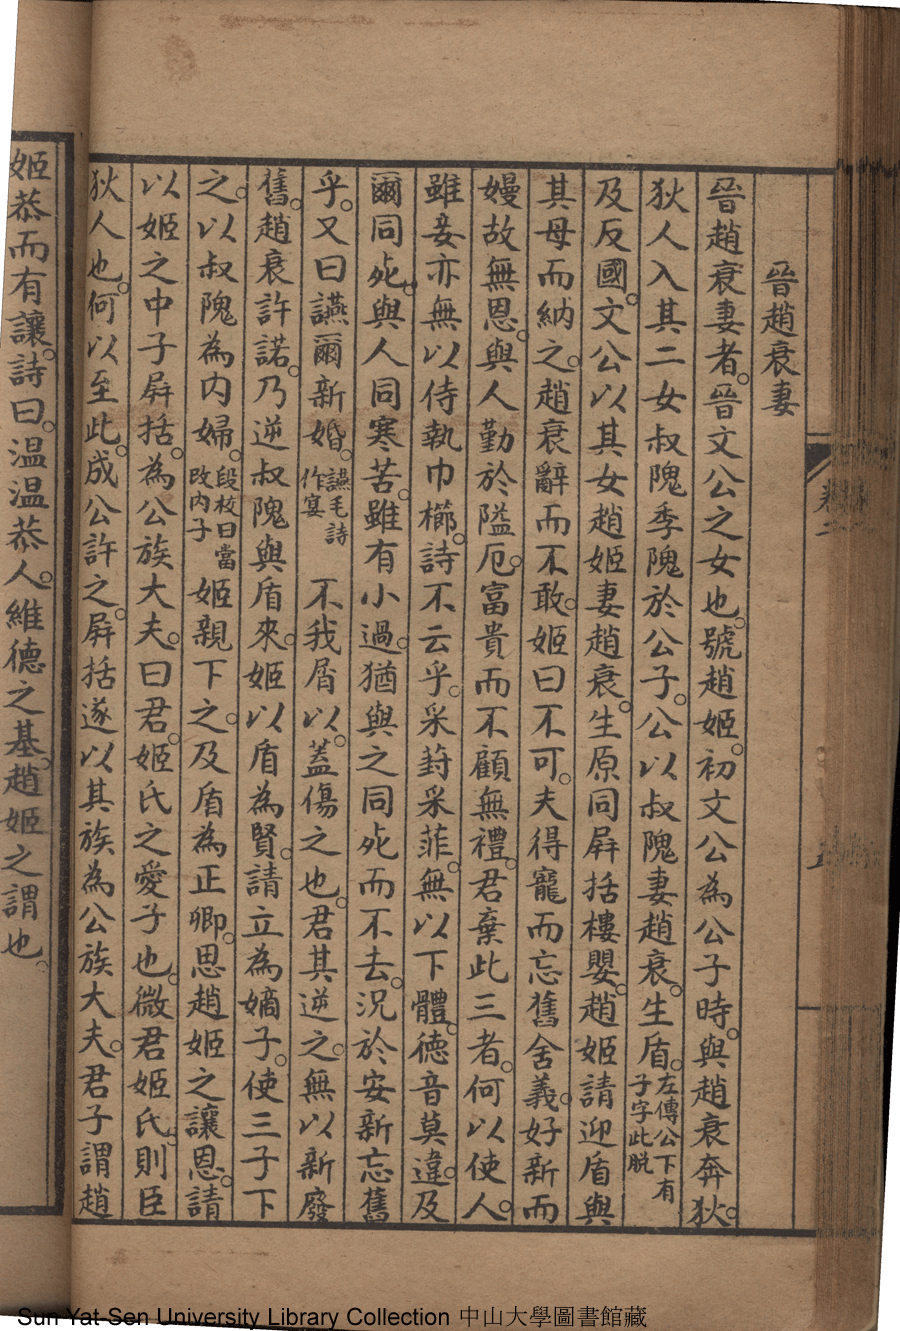 晉趙衰妻
晉趙衰妻者。晉文公之女也。號趙姬。初文公為公子時。與趙衰奔狄。
狄人入其二女叔隗季隗於公子。公以叔隗妻趙衰。生盾。左傳公下有子字此脫
及反國。文公以其女趙姬妻趙衰。生原同屏括樓嬰。趙姬請迎盾與
其母而納之。趙衰辭而不敢。姬曰不可。夫得寵而忘舊舍義。好新而
嫚故無恩。與人勤於隘厄。富貴而不顧無禮。君棄此三者。何以使人。
雖妾亦無以侍執巾櫛。詩不云乎。采葑采菲。無以下體。德音莫違。及
爾同死。與人同寒苦。雖有小過。猶與之同死而不去。況於安新忘舊
乎。又曰讌爾新婚。讌毛詩作宴 不我屑以。蓋傷之也。君其逆之。無以新廢
舊。趙衰許諾。乃逆叔隗與盾來。姬以盾為賢。請立為嫡子。使三子下
之。以叔隗為內婦。段校曰當改內子 姬親下之。及盾為正卿。思趙姬之讓恩。請
以姬之中子屏括。為公族大夫。曰君。姬氏之愛子也。微君姬氏。則臣
狄人也。何以至此。成公許之。屏括遂以其族為公族大夫。君子謂趙
姬恭而有讓。詩曰。温温恭人。維德之基。趙姬之謂也。
Sun Yat-Sen University Library Collection 中山大學圖書館藏